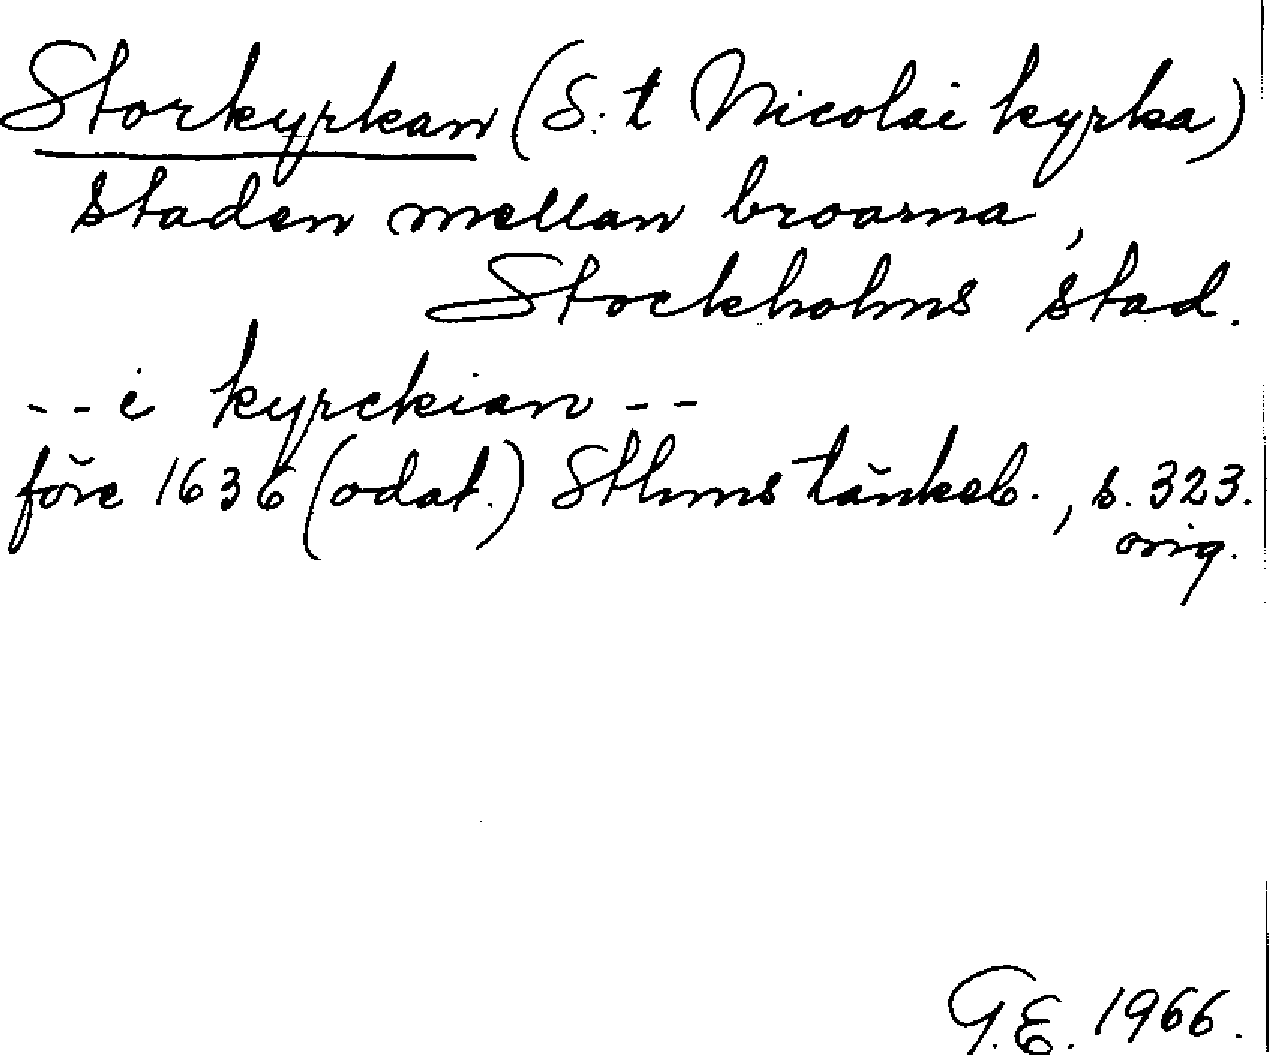 Storkyrkan (S:t Nicolai kyrka)
staden mellan broarna,
Stockholms stad.
-- i kyrckian --
före 1636 (odat.) Sthms tänkeb., s. 323.
orig.
G.E. 1966.